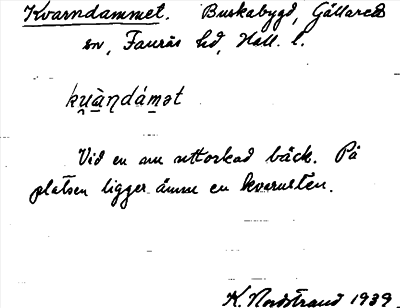 Kvarndammet. Buskabygd, Gällared
sn, Faurås hd, Hall. l.
kṷà̱ṇdám̱ət
Vid en nu uttorkad bäck. På
platsen ligger ännu en kvarnsten.
K. Nordstrand 1939.